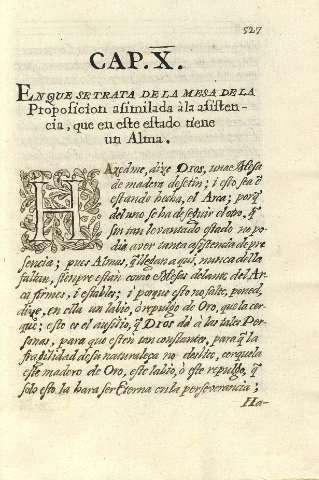 527
CAP. X.
EN QUE SE TRATA DE LA MESA DE LA
Proposicion asimilada à la asisten-
cia, que en este estado tiene
un Alma.
HAzedme, dize Dios, una Mesa
de madera de setin; i esto, sea
estando hecha, el Arca; porq̃
del uno se ha de seguir el otro, q̃
sin tan levantado estado no po-
dia aver tanta asistencia de pre
sencia; pues Almas, q̃ llegan a qui, nunca de ella
faltan, sienpre estan como Mesas delante del Ar-
ca firmes, i estables; i porque esto no falte, poned,
dize, en ella un labio, ò repulgo de Oro, que la cer-
que; esto es el ausilio, q̃ Dios dá à las tales Per-
sonas, para que esten tan constantes, para q̃ la
fragilidad de su naturaleza no deslite, cerquela
este madero de Oro, este labio, ò este repulgo, q̃
solo esto la hara ser Eterna en la perseverancia;
Ha-